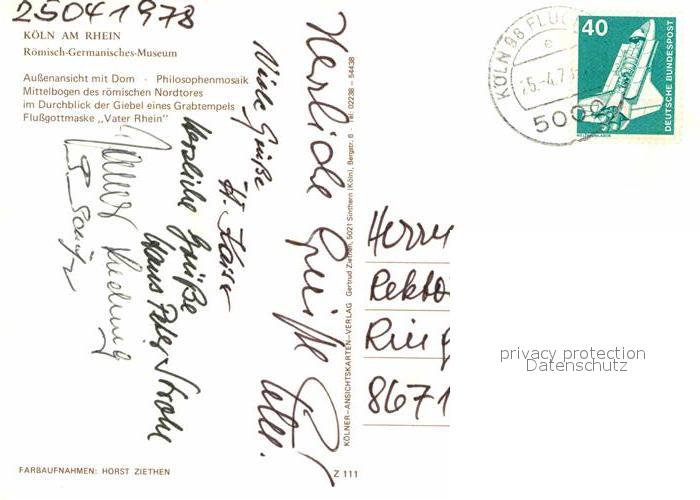 25041978
KÖLN AM RHEIN
Römisch-Germanisches-Museum
Außenansicht mit Dom · Philosophenmosaik
Mittelbogen des römischen Nordtores
im Durchblick der Giebel eines Grabtempels
Flußgottmaske „Vater Rhein"
Herzliche Grüße
Peter.
Viele Grüße
H.
Herzliche Grüße
Hans Peter
KÖLNER-ANSICHTSKARTEN-VERLAG Gertrud Ziethen, 5021 Sinthern (Köln), Bergstr. 6 Tel. 02238 - 54438
Z 111
FARBAUFNAHMEN: HORST ZIETHEN
KÖLN 98
e
25.-4.7
500
40
DEUTSCHE BUNDESPOST
Herrn
Rekto
Ring
8671
privacy protection
Datenschutz